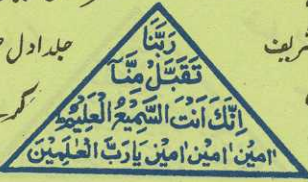 رَبَّنَا
تَقَبَّلْ مِنَّا
اِنَّكَ اَنْتَ السَّمِيْعُ الْعَلِيْمُ
اٰمِيْن اٰمِيْن اٰمِيْن يَا رَبَّ الْعٰلَمِيْنَ
جلد اول